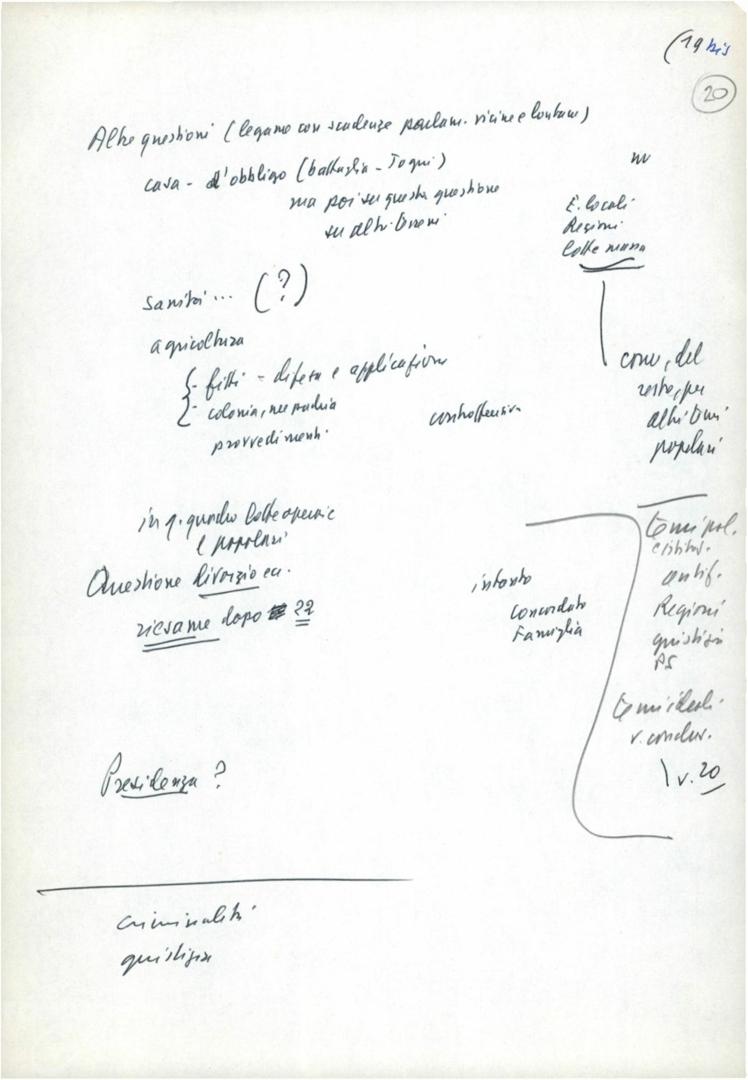 (19 bis
20
Altre questioni (legame con scadenze parlam. vicine e lontane)
casa - d'obbligo (battaglia - Togni)
ma poi su questa questione
su altri temi
E. locali
Regioni
Lotte massa
sanità... (?)
agricoltura
- fitti - difesa e applicazione
- colonia, mezzadria
provvedimenti
controffensiva
come, del
resto, per
altri temi
popolari
in q. quadro lotte operaie
e popolari
Questione divorzio ecc.
riesame dopo 22
intanto
Concordato
Famiglia
temi pol.
e istituz.
antif.
Regioni
giustizia
PS
temi ideali
v. conclus.
v. 20
Presidenza?
criminalità
giustizia